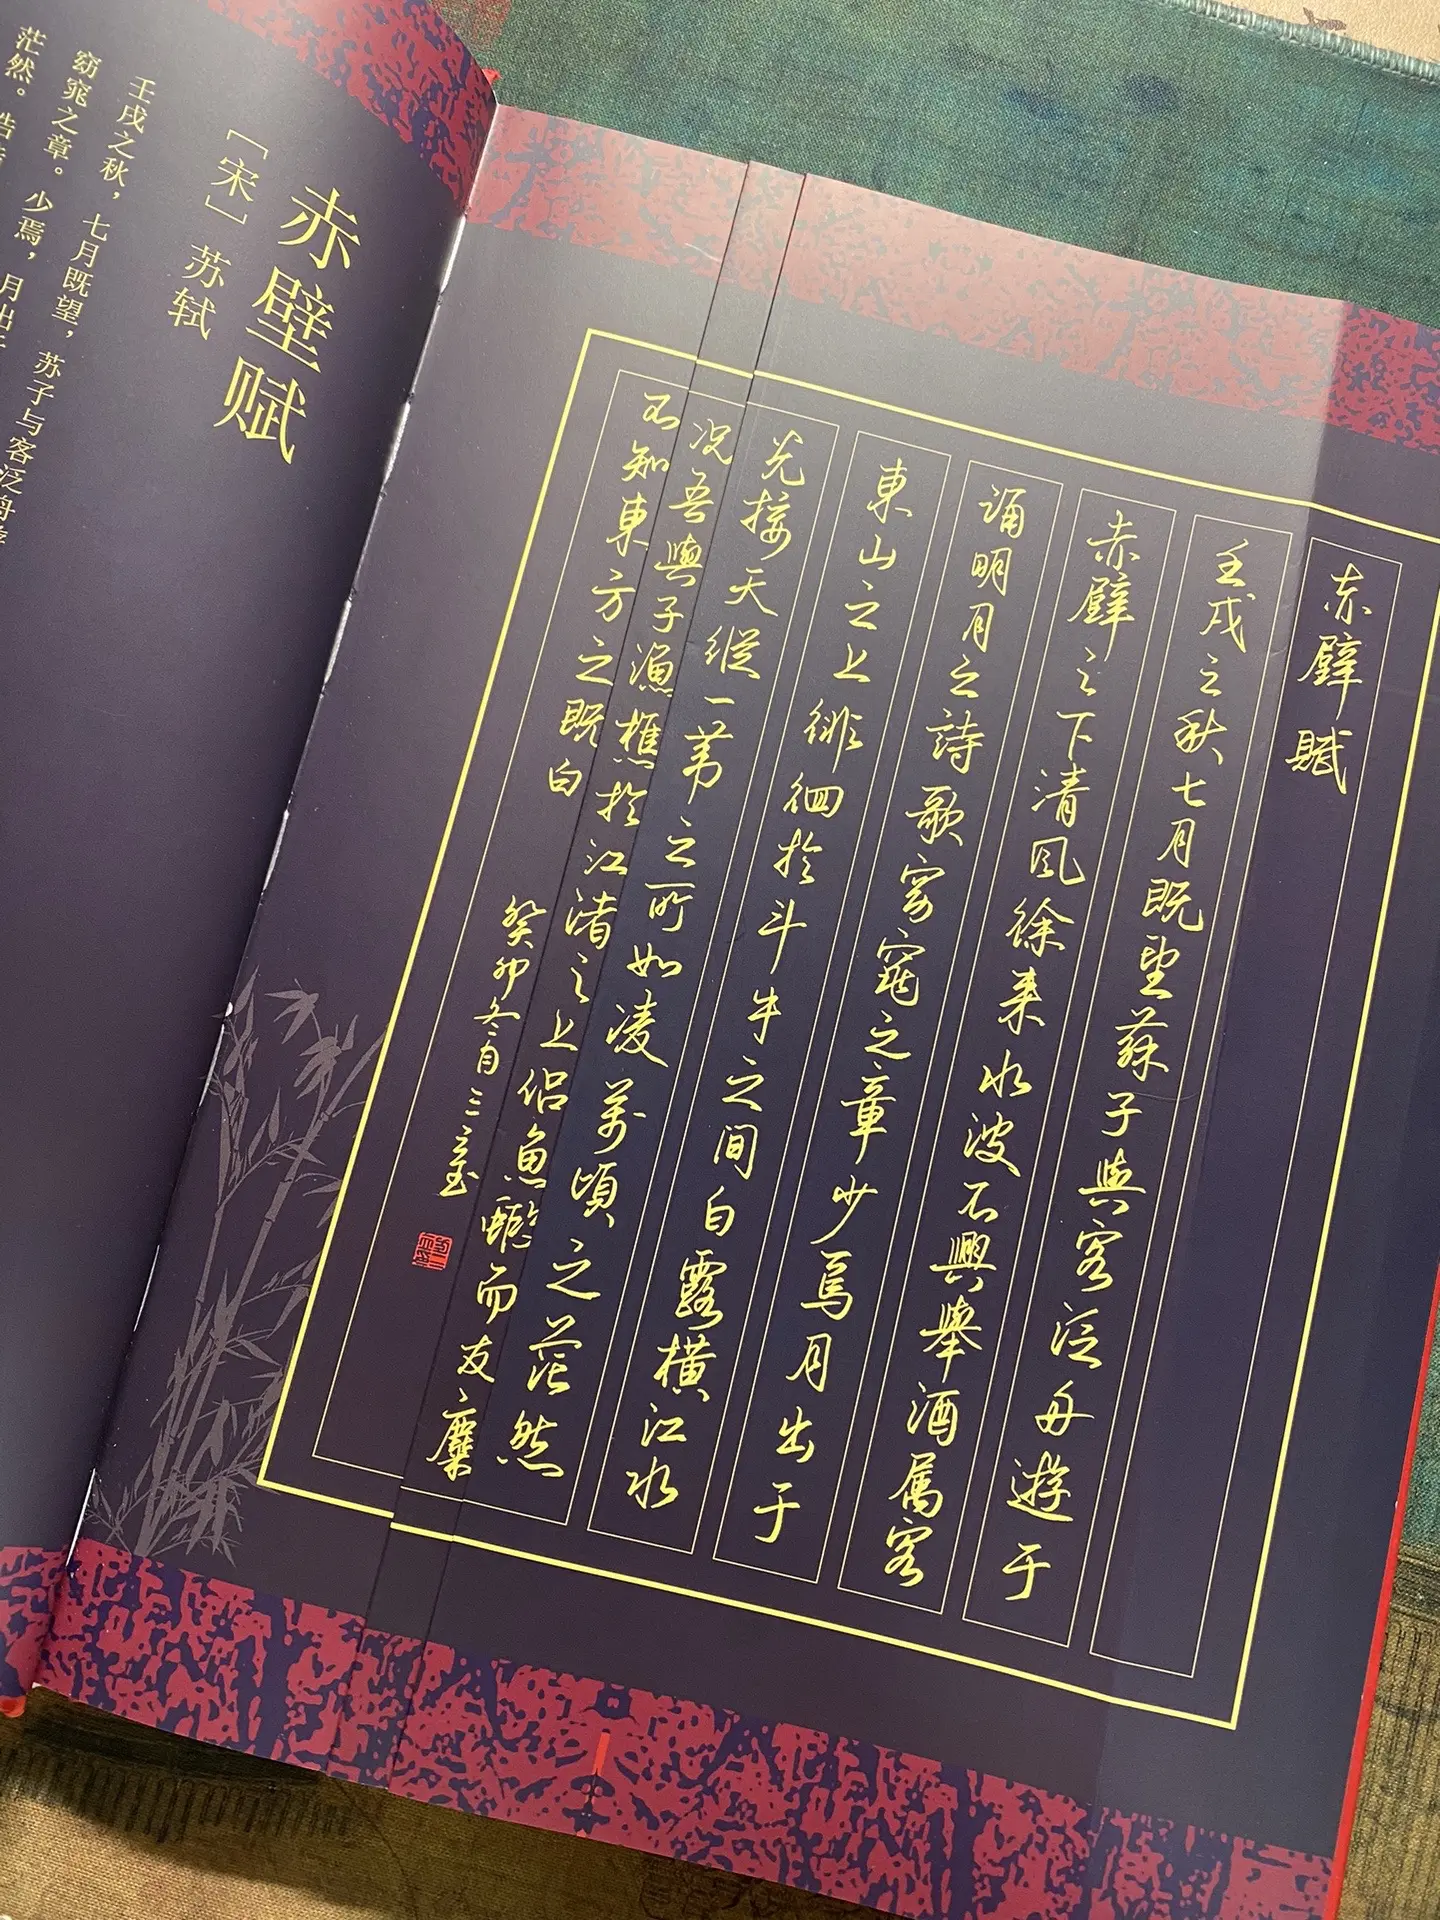 赤壁赋
［宋］苏轼
壬戌之秋，七月既望，苏子与客泛舟
窈窕之章。少焉，月出
茫然。浩
赤壁賦
壬戌之秋七月既望蘇子與客泛舟遊于
赤壁之下清風徐来水波不興舉酒属客
誦明月之詩歌窈窕之章少焉月出于
東山之上徘徊於斗牛之间白露橫江水
光接天縱一葦之所如凌萬頃之茫然
况吾與子漁樵於江渚之上侣魚蝦而友麋
不知東方之既白
癸卯冬月三